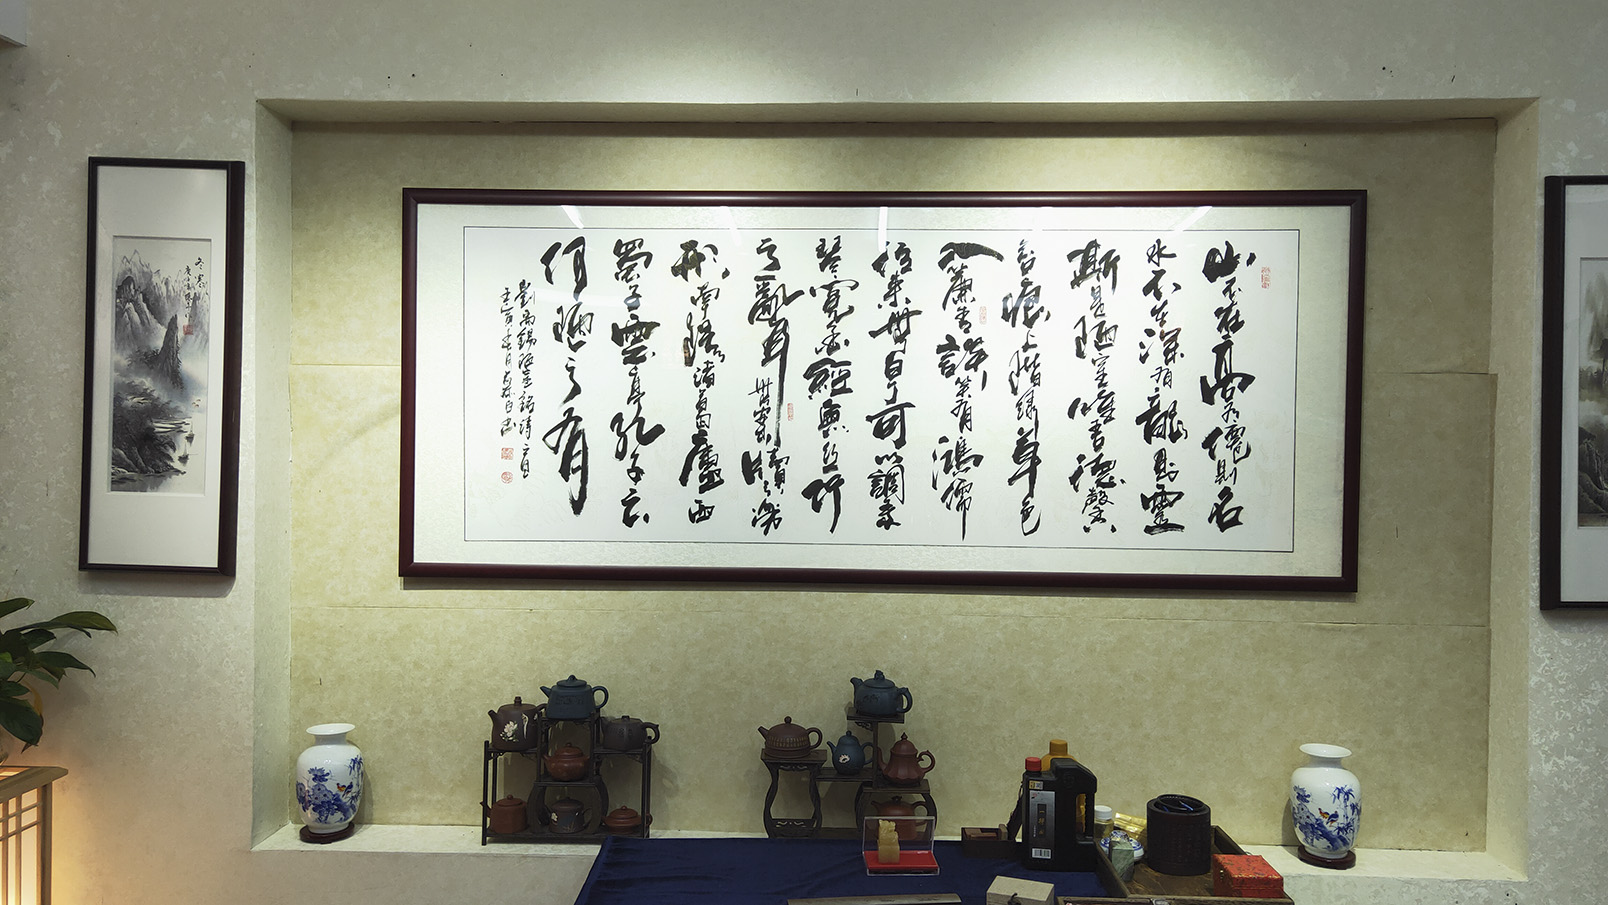 山不在高有僊則名
水不在深有龍則靈
斯是陋室唯吾德馨
苔痕上階綠草色
入簾青談笑有鴻儒
往來無白丁可以調素
琴閱金經無絲竹
之亂耳無案牘之勞
形南陽諸葛廬西
蜀子雲亭孔子云
何陋之有
劉禹錫陋室銘
冬寒